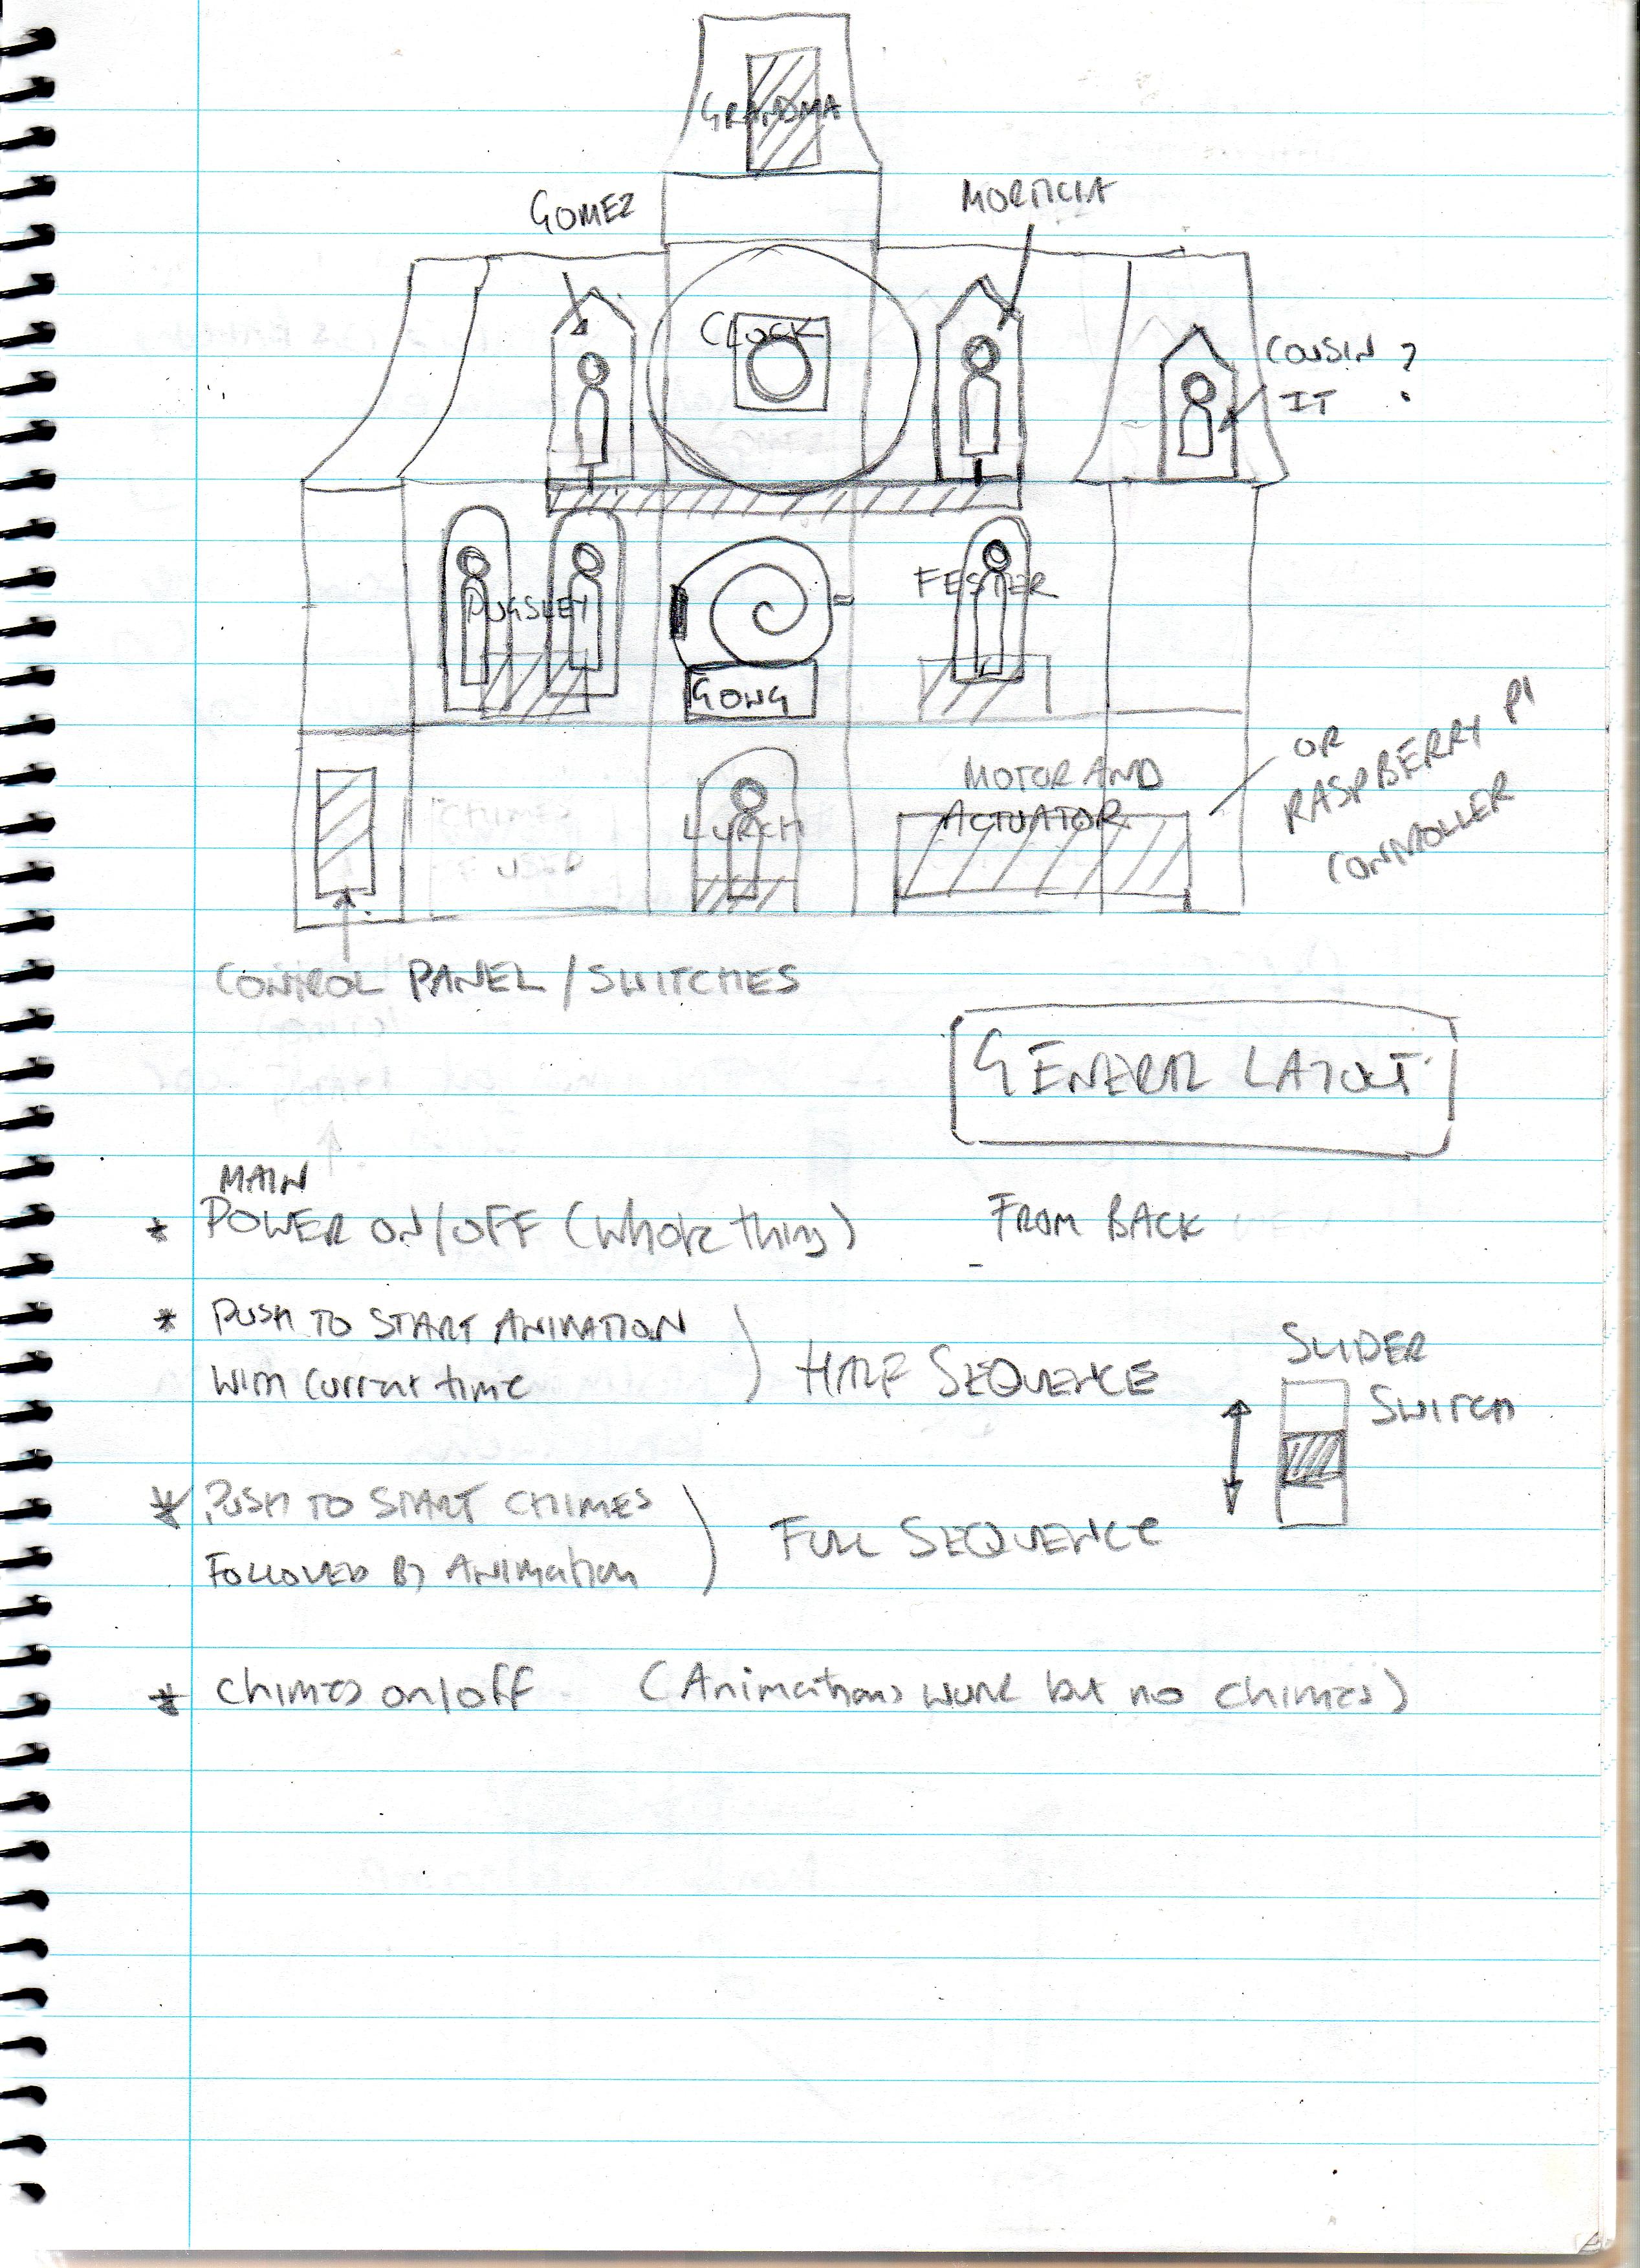 GRANDMA
GOMEZ
MORTICIA
CLOCK
COUSIN ?
IT
PUGSLEY
FESTER
GONG
OR
RASPBERRY PI
CONTROLLER
MOTOR AND
ACTUATOR
CHIMES
IF USED
LURCH
CONTROL PANEL / SWITCHES
GENERAL LAYOUT
MAIN
* POWER ON/OFF (Whole thing)
FROM BACK
* PUSH TO START ANIMATION
With Current time
HALF SEQUENCE
SLIDER
SWITCH
* PUSH TO START CHIMES
FOLLOWED By ANIMATION
FULL SEQUENCE
* Chimes on/off (Animations work but no chimes)